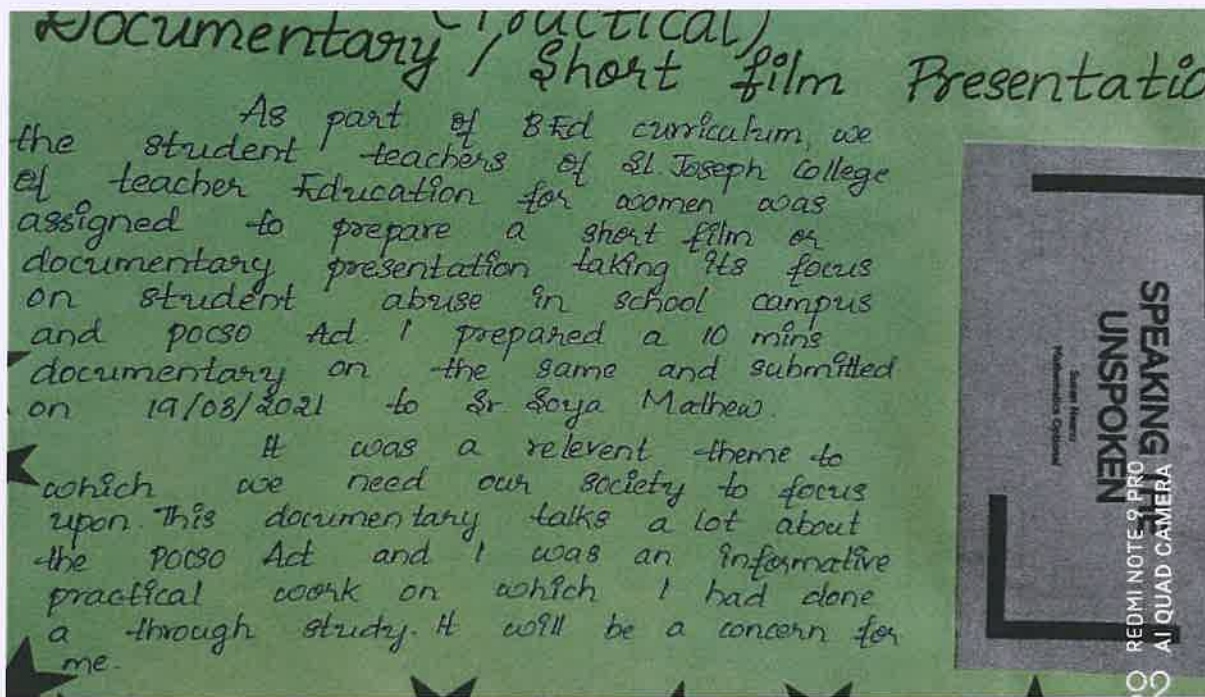 (Practical)
Documentary / Short film Presentatio
As part of BEd curriculum, we
the student teachers of St. Joseph College
of teacher Education for women was
assigned to prepare a short film or
documentary presentation taking its focus
on student abuse in school campus
and POCSO Act. I prepared a 10 mins
documentary on the same and submitted
on 19/03/2021 to Sr. Soya Mathew.
It was a relevent theme to
which we need our society to focus
upon. This documentary talks a lot about
the POCSO Act and I was an informative
practical work on which I had done
a through study. It will be a concern for
me.
SPEAKING THE
UNSPOKEN
Mathematics Optional
REDMI NOTE 9 PRO
AI QUAD CAMERA